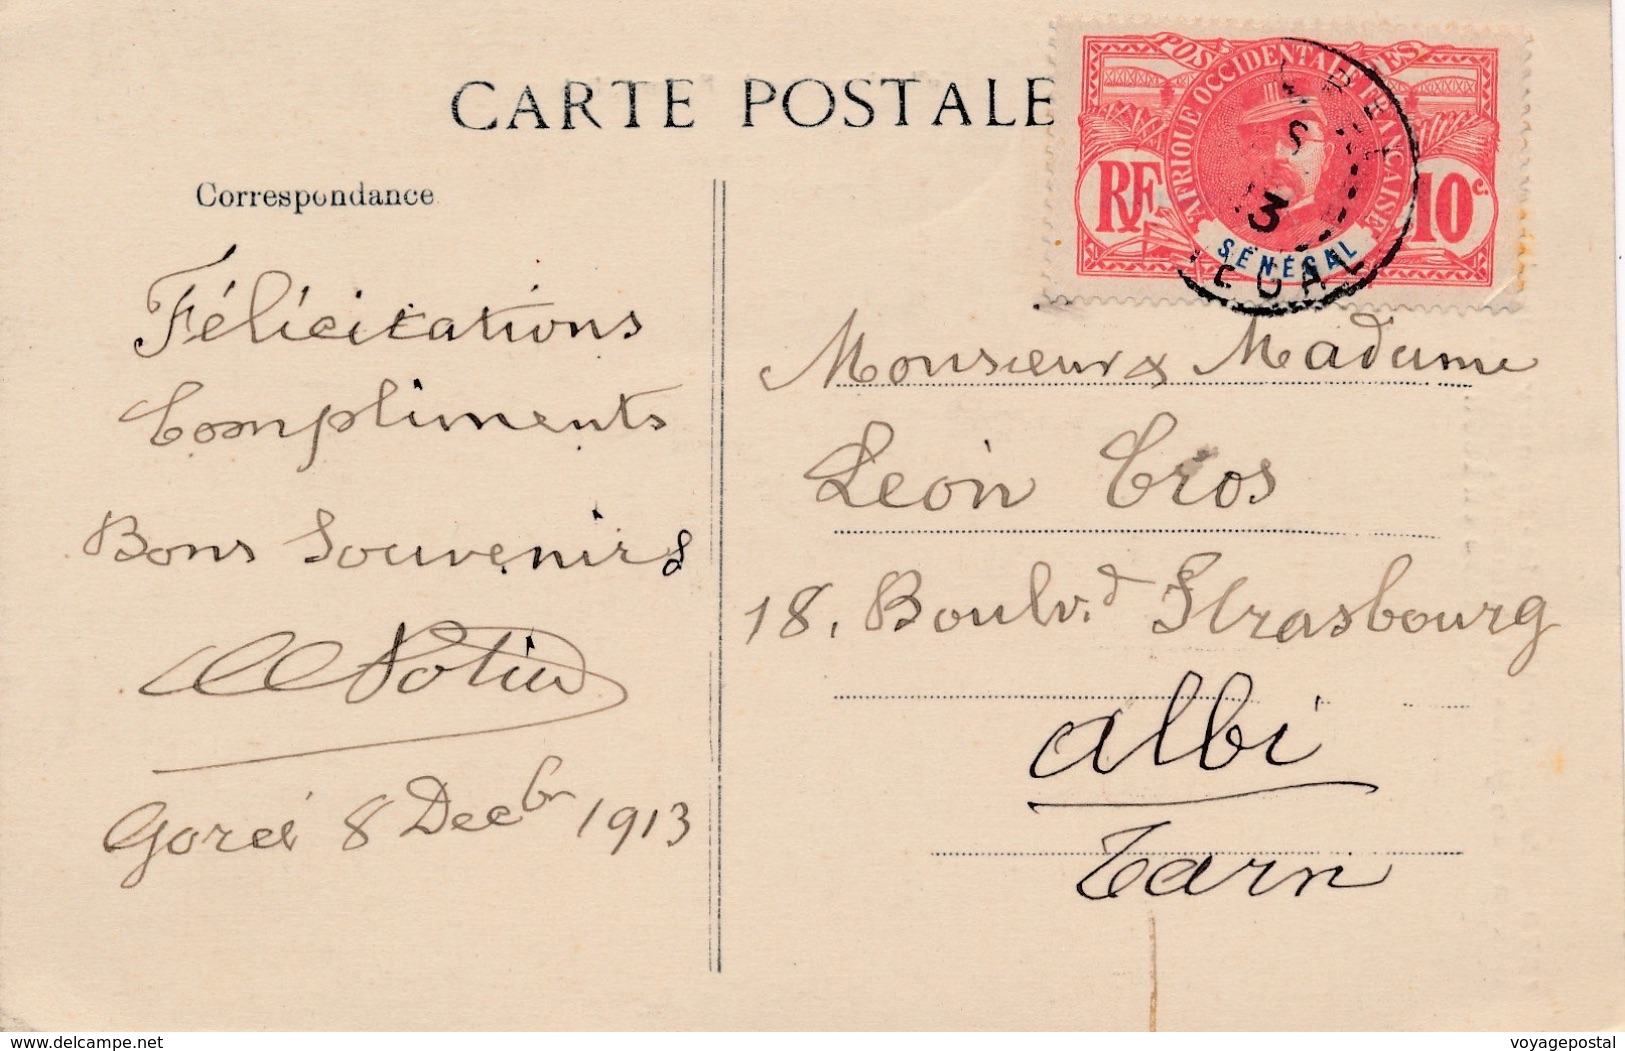 CARTE POSTALE
Correspondance
Félicitations
Compliments
Bons Souvenirs
Gorée 8 Decbr 1913
POSTES
AFRIQUE OCCIDENTALE FRANÇAISE
RF
10c.
SÉNÉGAL
Monsieur & Madame
Léon Cros
18, Boulv.d Strasbourg
Albi
Tarn
www.delcampe.net
voyagepostal